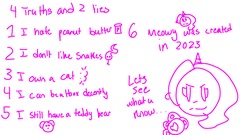 4 Truths and 2 lies
1 I hate peanut butter
2 I don't like Snakes
3 I own a cat :3
4 I can backbend decently
5 I still have a teddy bear
6 Meowy was created in 2023
Lets see what u know...